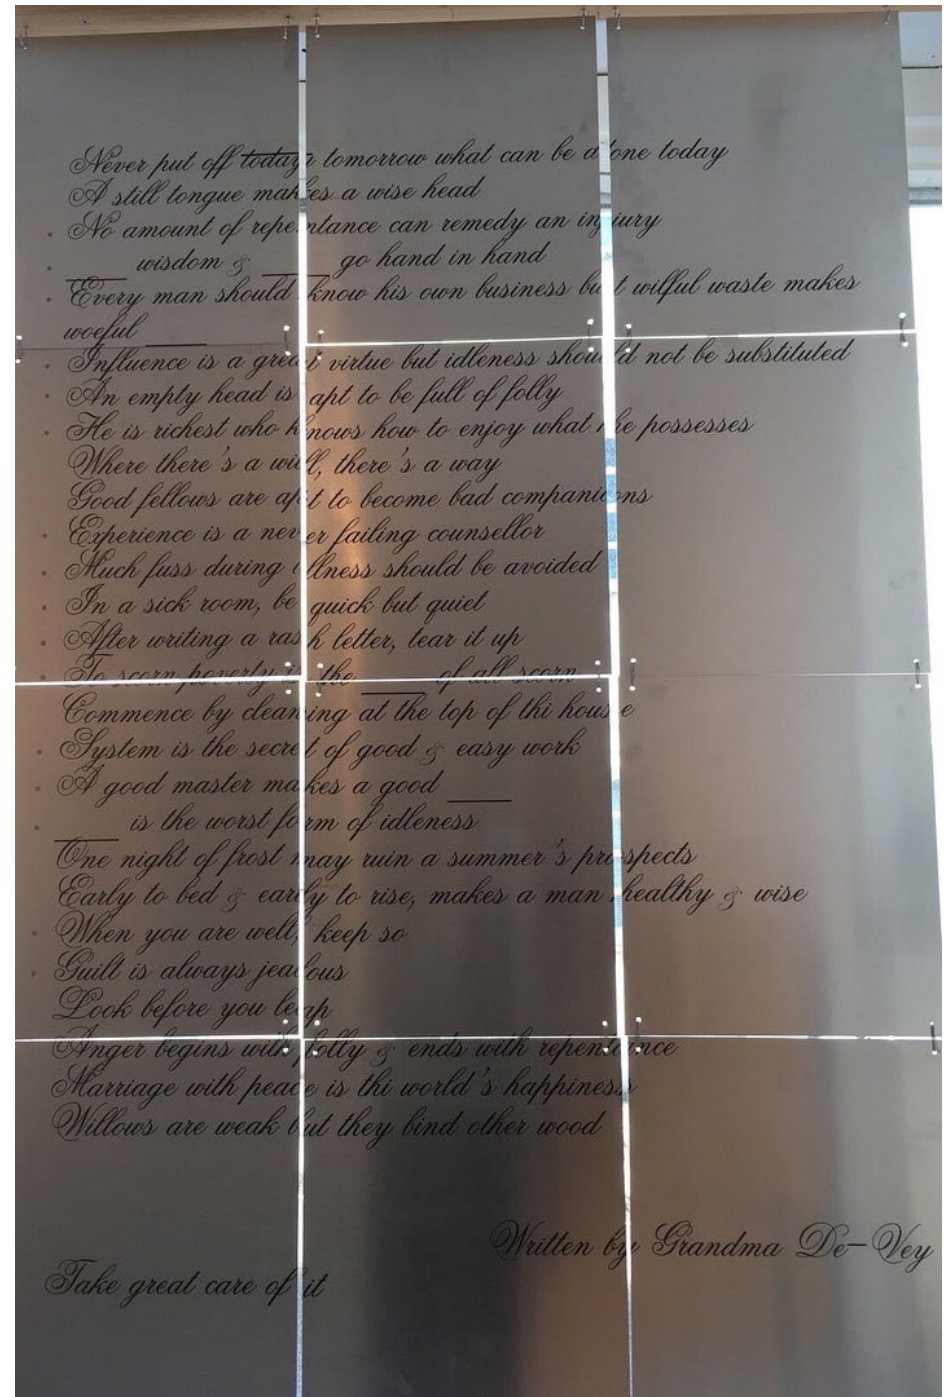 Never put off today tomorrow what can be done today
A still tongue makes a wise head
· No amount of repentance can remedy an injury
· ____ wisdom & ____ go hand in hand
· Every man should know his own business but wilful waste makes
woeful ____
· Influence is a great virtue but idleness should not be substituted
· An empty head is apt to be full of folly
· He is richest who knows how to enjoy what he possesses
Where there's a will, there's a way
Good fellows are apt to become bad companions
· Experience is a never failing counsellor
· Much fuss during illness should be avoided
· In a sick room, be quick but quiet
· After writing a rash letter, tear it up
· To scorn poverty is the ____ of all scorn
Commence by cleaning at the top of thi house
· System is the secret of good & easy work
· A good master makes a good ____
· ____ is the worst form of idleness
One night of frost may ruin a summer's prospects
Early to bed & early to rise, makes a man healthy & wise
· When you are well, keep so
· Guilt is always jealous
Look before you leap
Anger begins with folly & ends with repentance
Marriage with peace is thi world's happiness
Willows are weak but they bind other wood
Written by Grandma De-Vey
Take great care of it